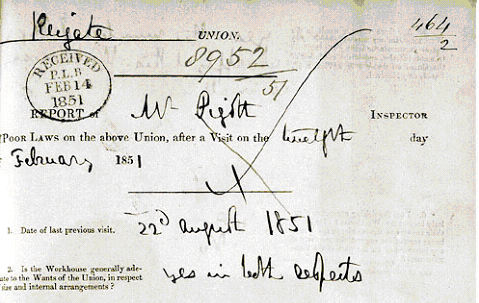 Reigate UNION.
464
2
8952
51
RECEIVED
P.L.B
FEB 14
1851
REPORT of Mr Pigott INSPECTOR
POOR LAWS on the above Union, after a Visit on the twelfth day
February 1851
1. Date of last previous visit. 22d august 1851
2. Is the Workhouse generally ade-
uate to the Wants of the Union, in respect
size and internal arrangements ?
yes in both respects